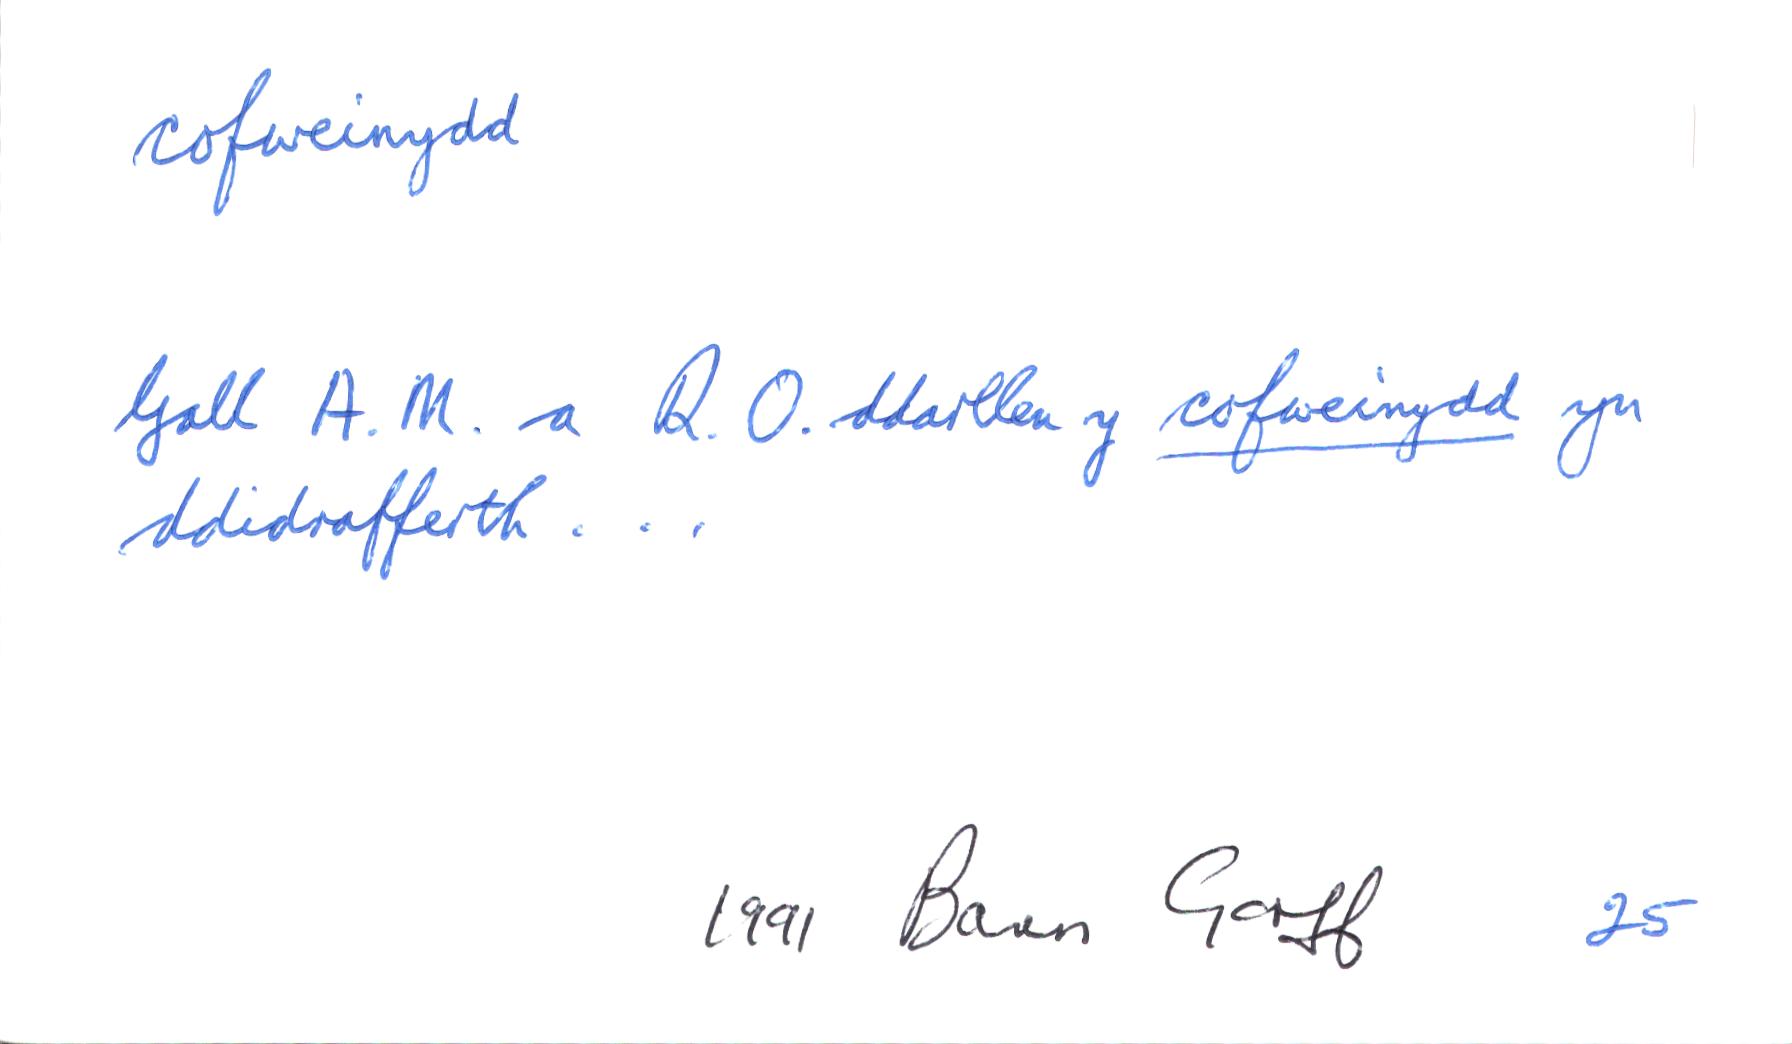 cofweinydd
Gall A.M. a R.O. ddarllen y cofweinydd yn
ddidrafferth . . . .
1991 Barn Gorff 25